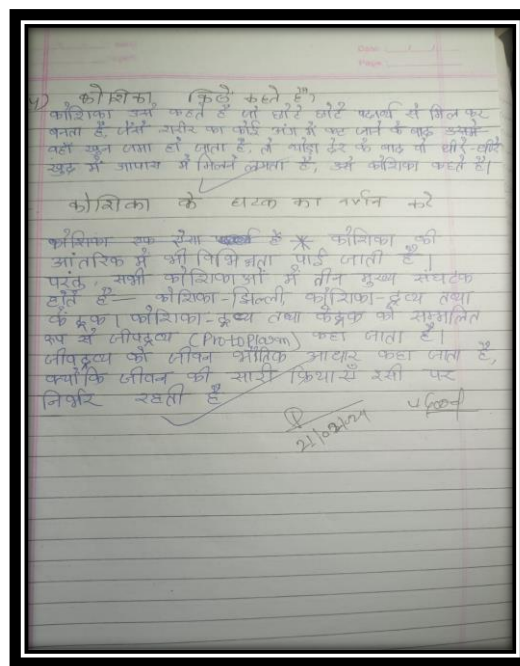 Date
Page
4) कोशिका किसे कहते है?
कोशिका उसे कहते है जो छोटे छोटे पदार्थ से मिल कर
बनता है, जैसे शरीर का कोई अंग में कट जाने के बाद उसमें
वहाँ खुन जमा हो जाता है, तो थोड़ा देर के बाद वो धीरे-धीरे
खुद में आपास में मिलने लगता है, उसे कोशिका कहते है।
कोशिका के घटक का वर्णन करे
कोशिका एक ऐसा है * कोशिका की
आंतरिक में भी विभिन्नता पाई जाती है।
परंतु, सभी कोशिकाओं में तीन मुख्य संघटक
होते हैं— कोशिका-झिल्ली, कोशिका-द्रव्य तथा
केंद्रक। कोशिका-द्रव्य तथा केंद्रक को सम्मलित
रूप से जीवद्रव्य (Protoplasm) कहा जाता है।
जीवद्रव्य को जीवन भौतिक आधार कहा जाता है,
क्योंकि जीवन की सारी क्रियाएँ इसी पर
निर्भर रहती है
v Good